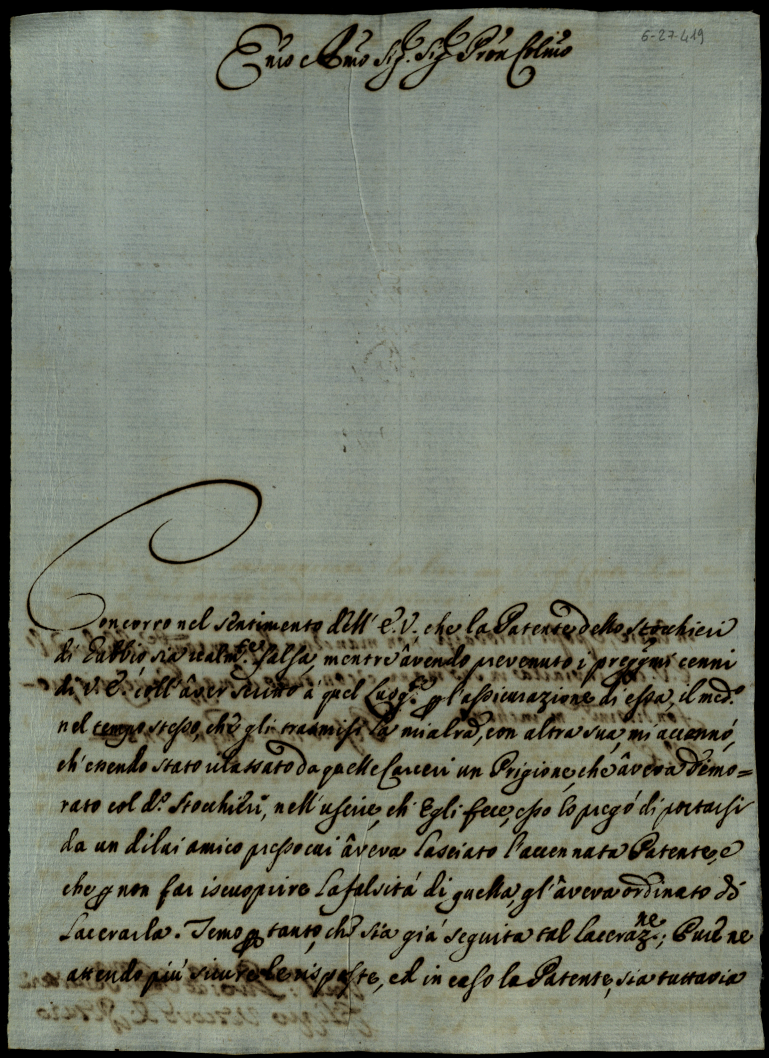 6-27-419
Emo e Rmo Sig.r Sig.r Pron Colmo
Concorro nel sentimento dell' E.V. che la Patente dello Stocchieri
di Gubbio sia realm.te falsa, mentre avendo prevenuto i preggmi cenni
di V.E. coll' aver scritto à quel Luogt.e p l'assicurazione di essa, il med.o
nel tempo stesso, che gli trasmisi la mia lra, con altra sua mi accennó,
ch' essendo stato rilassato da quelle Carceri un Prigione, che aveva dimo=
rato col d.o Stocchieri, nell' uscire, ch' Egli fece, esso lo pregó di portarsi
da un di lui amico presso cui aveva lasciato l'accennata Patente, e
che p non far iscuoprire la falsitá di quella, gl' aveva ordinato di
lacerarla. Temo p tanto, che sia giá seguita tal laceraz.ne; Pure ne
attendo piú sicure le risposte, ed in caso la Patente, sia tuttavia